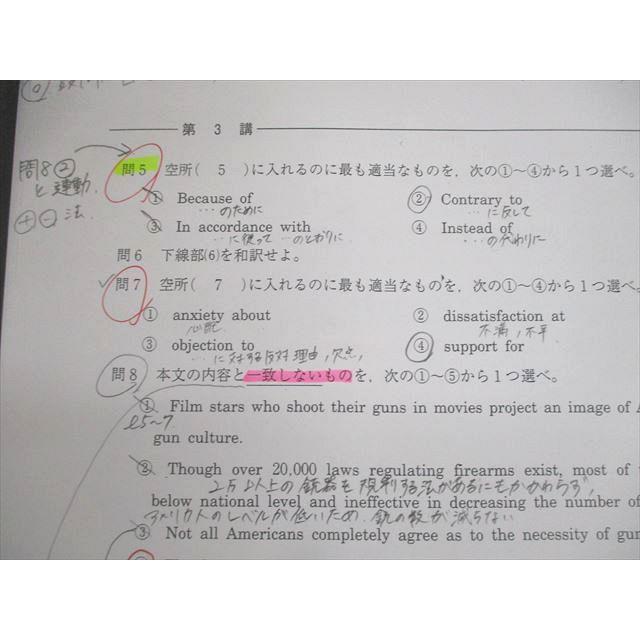 第 3 講
問8②
と連動.
⊕⊖法
問5 空所( 5 )に入れるのに最も適当なものを, 次の①~④から1つ選べ。
① Because of ② Contrary to
…のために …に反して
③ In accordance with ④ Instead of
…に従って …のとおりに …の代わりに
問6 下線部(6)を和訳せよ。
問7 空所( 7 )に入れるのに最も適当なものを, 次の①~④から1つ選べ。
① anxiety about ② dissatisfaction at
心配 不満, 不平
③ objection to ④ support for
…に対する反対理由, 欠点,
問8 本文の内容と一致しないものを, 次の①~⑤から1つ選べ。
① Film stars who shoot their guns in movies project an image of
ℓ5~7
gun culture.
② Though over 20,000 laws regulating firearms exist, most of
2万以上の銃器を規制する法があるにもかかわらず,
below national level and ineffective in decreasing the number of
アメリカ人のレベルが低いため, 銃の数が減らない
③ Not all Americans completely agree as to the necessity of